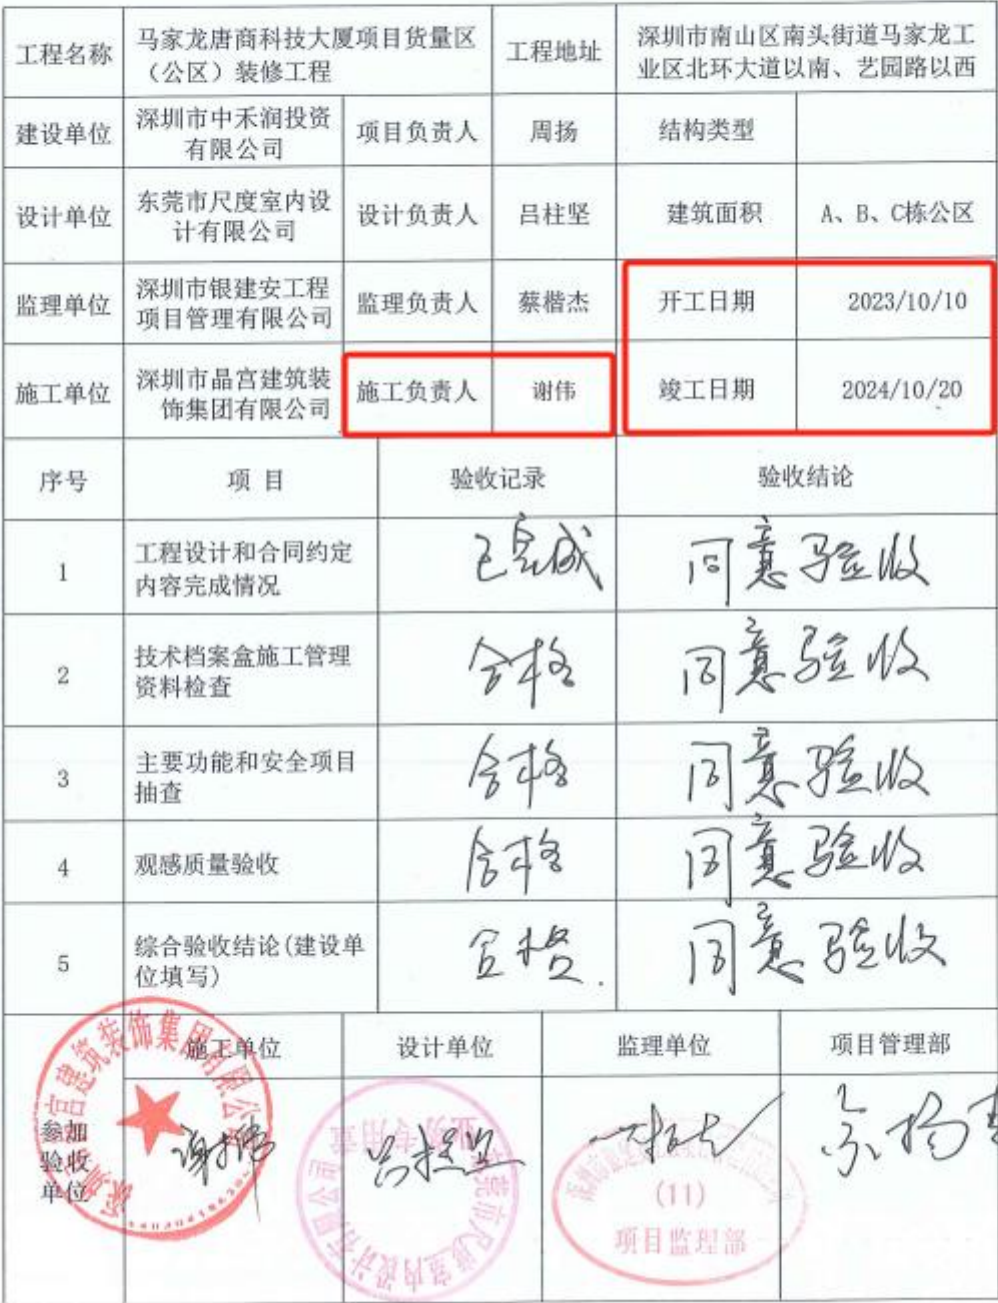 工程名称
马家龙唐商科技大厦项目货量区
（公区）装修工程
工程地址
深圳市南山区南头街道马家龙工
业区北环大道以南、艺园路以西
建设单位
深圳市中禾润投资
有限公司
项目负责人
周扬
结构类型
设计单位
东莞市尺度室内设
计有限公司
设计负责人
吕柱坚
建筑面积
A、B、C栋公区
监理单位
深圳市银建安工程
项目管理有限公司
监理负责人
蔡楷杰
开工日期
2023/10/10
施工单位
深圳市晶宫建筑装
饰集团有限公司
施工负责人
谢伟
竣工日期
2024/10/20
序号
项 目
验收记录
验收结论
1
工程设计和合同约定
内容完成情况
已完成
同意验收
2
技术档案盒施工管理
资料检查
合格
同意验收
3
主要功能和安全项目
抽查
合格
同意验收
4
观感质量验收
合格
同意验收
5
综合验收结论(建设单
位填写)
合格.
同意验收
参加
验收
单位
施工单位
设计单位
监理单位
项目管理部
谢伟
吕柱坚
业务专用章
(11)
项目监理部